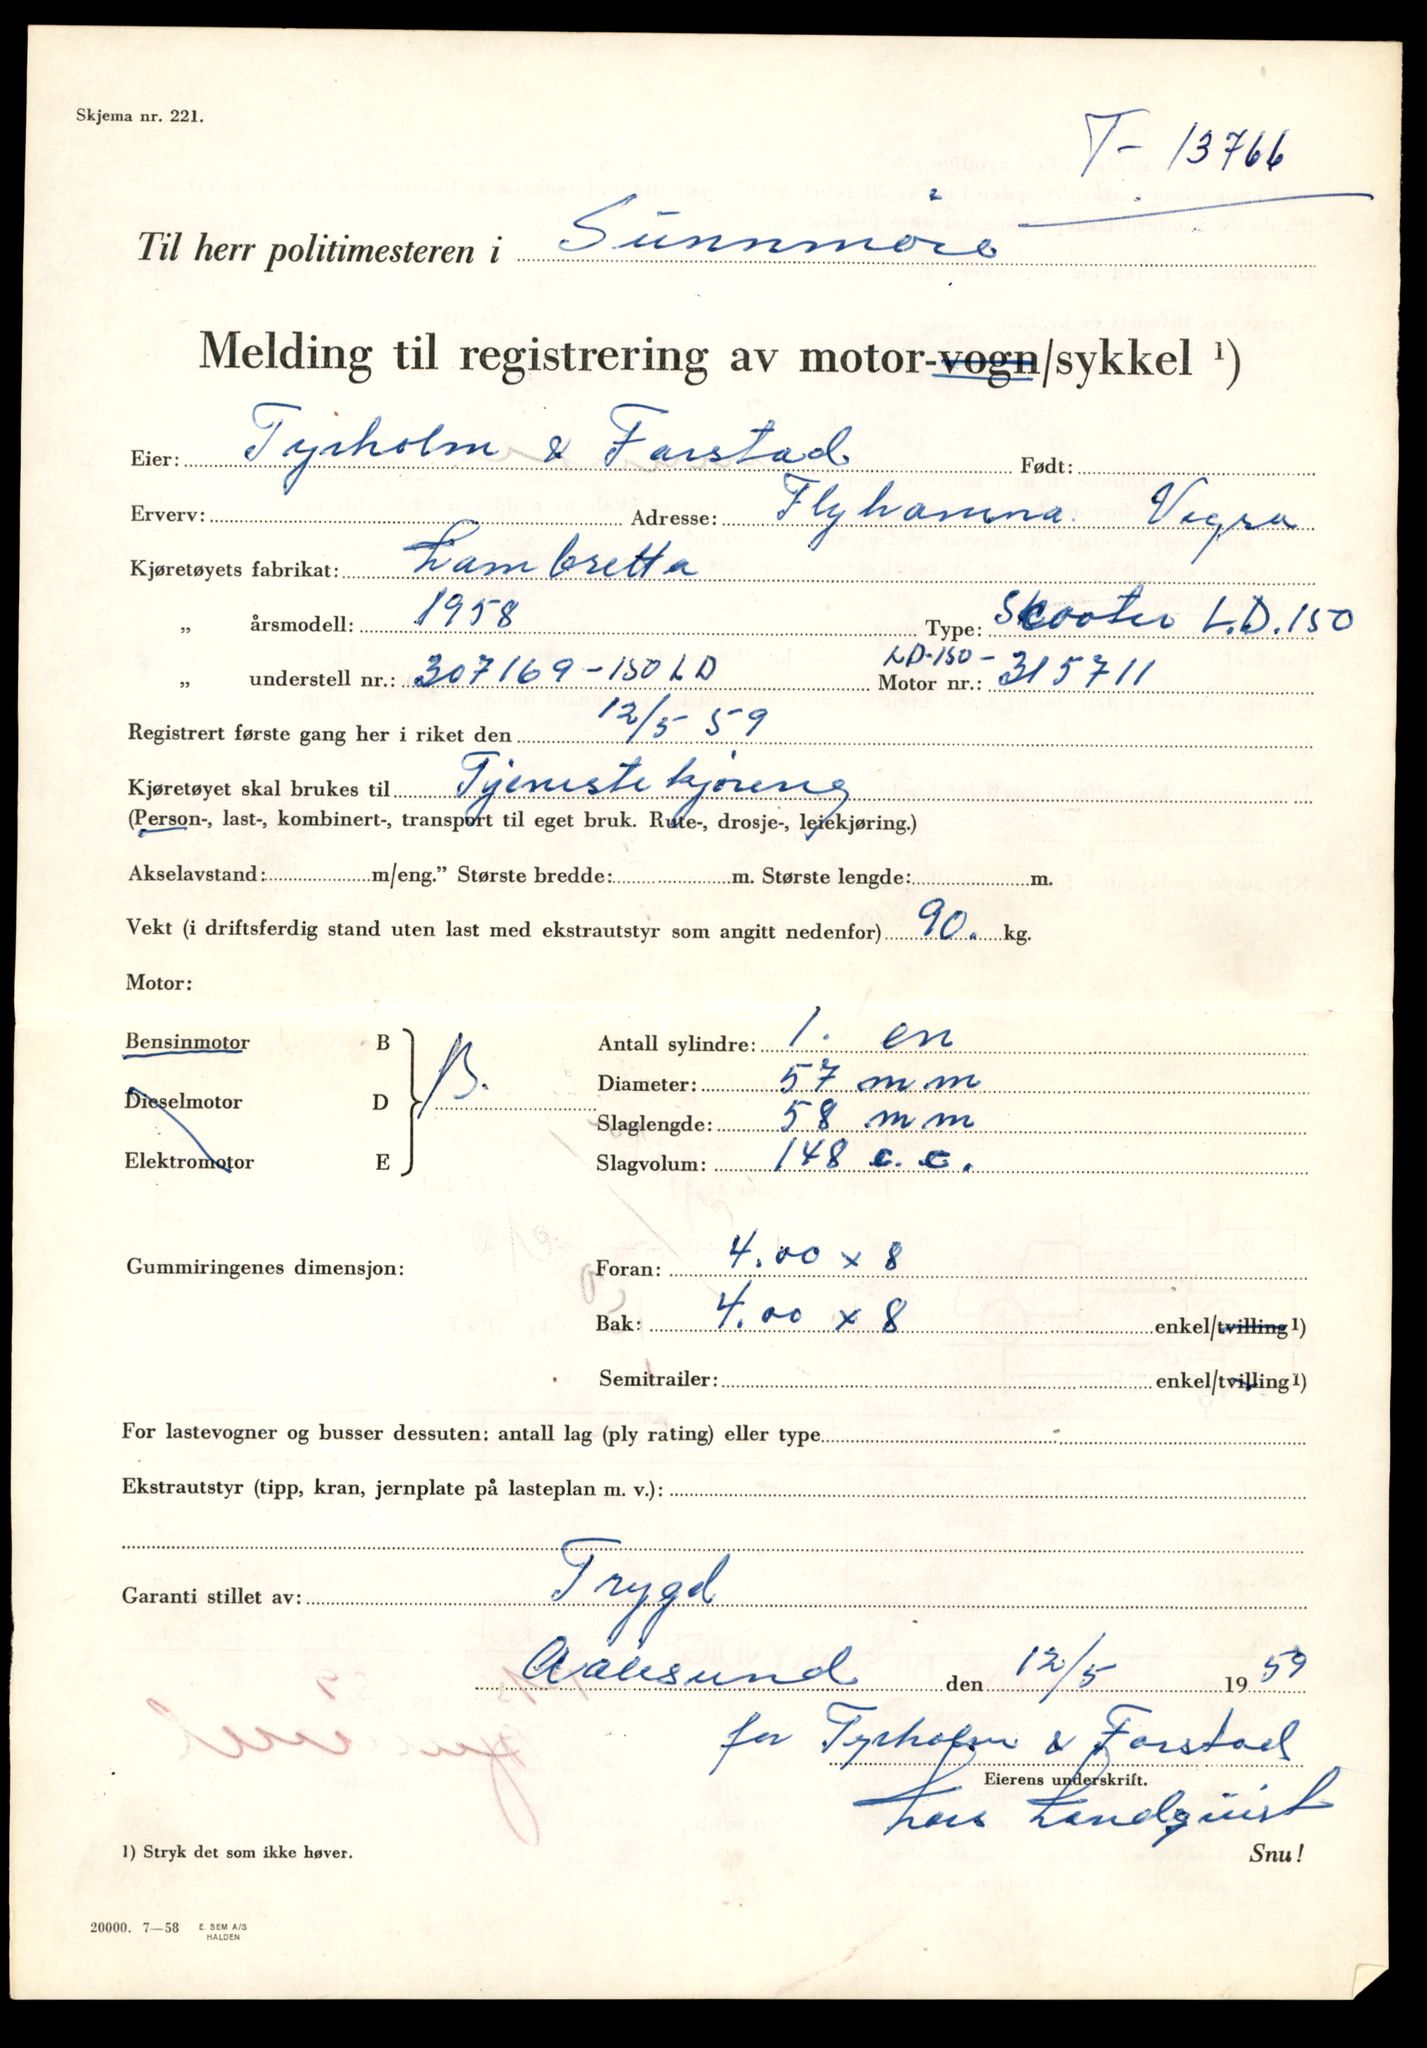 Skjema nr. 221.
T- 13766
Til herr politimesteren i Sunnmøre
Melding til registrering av motor-vogn/sykkel ¹)
Eier: Tyrholm & Farstad Født:
Erverv: Adresse: Flyhamna. Vigra
Kjøretøyets fabrikat: Lambretta
„ årsmodell: 1958 Type: Scooter L.D.150
„ understell nr.: 307169-150 LD Motor nr.: LD-150- 315711
Registrert første gang her i riket den 12/5 59
Kjøretøyet skal brukes til Tjenestekjøring
(Person-, last-, kombinert-, transport til eget bruk. Rute-, drosje-, leiekjøring.)
Akselavstand: m/eng.” Største bredde: m. Største lengde: m.
Vekt (i driftsferdig stand uten last med ekstrautstyr som angitt nedenfor) 90. kg.
Motor:
Bensinmotor B
Dieselmotor D
Elektromotor E
B.
Antall sylindre: 1. en
Diameter: 57 mm
Slaglengde: 58 mm
Slagvolum: 148 c.c.
Gummiringenes dimensjon: Foran: 4.00 x 8
Bak: 4.00 x 8 enkel/tvilling ¹)
Semitrailer: enkel/tvilling ¹)
For lastevogner og busser dessuten: antall lag (ply rating) eller type
Ekstrautstyr (tipp, kran, jernplate på lasteplan m. v.):
Garanti stillet av: Trygd
Aalesund den 12/5 1959
for Tyrholm & Farstad
Eierens underskrift.
Lars Landquist
1) Stryk det som ikke høver.
Snu!
20000. 7—58 E. SEM A/S
HALDEN